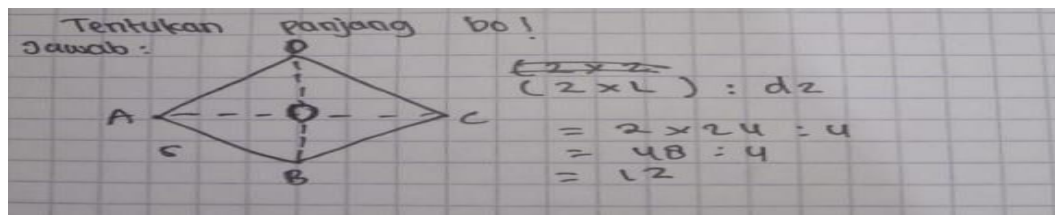 Tentukan panjang bo!
Jawab:
D
A O C
5
B
(2 x 2
(2 x L) : d2
= 2 x 24 : 4
= 48 : 4
= 12